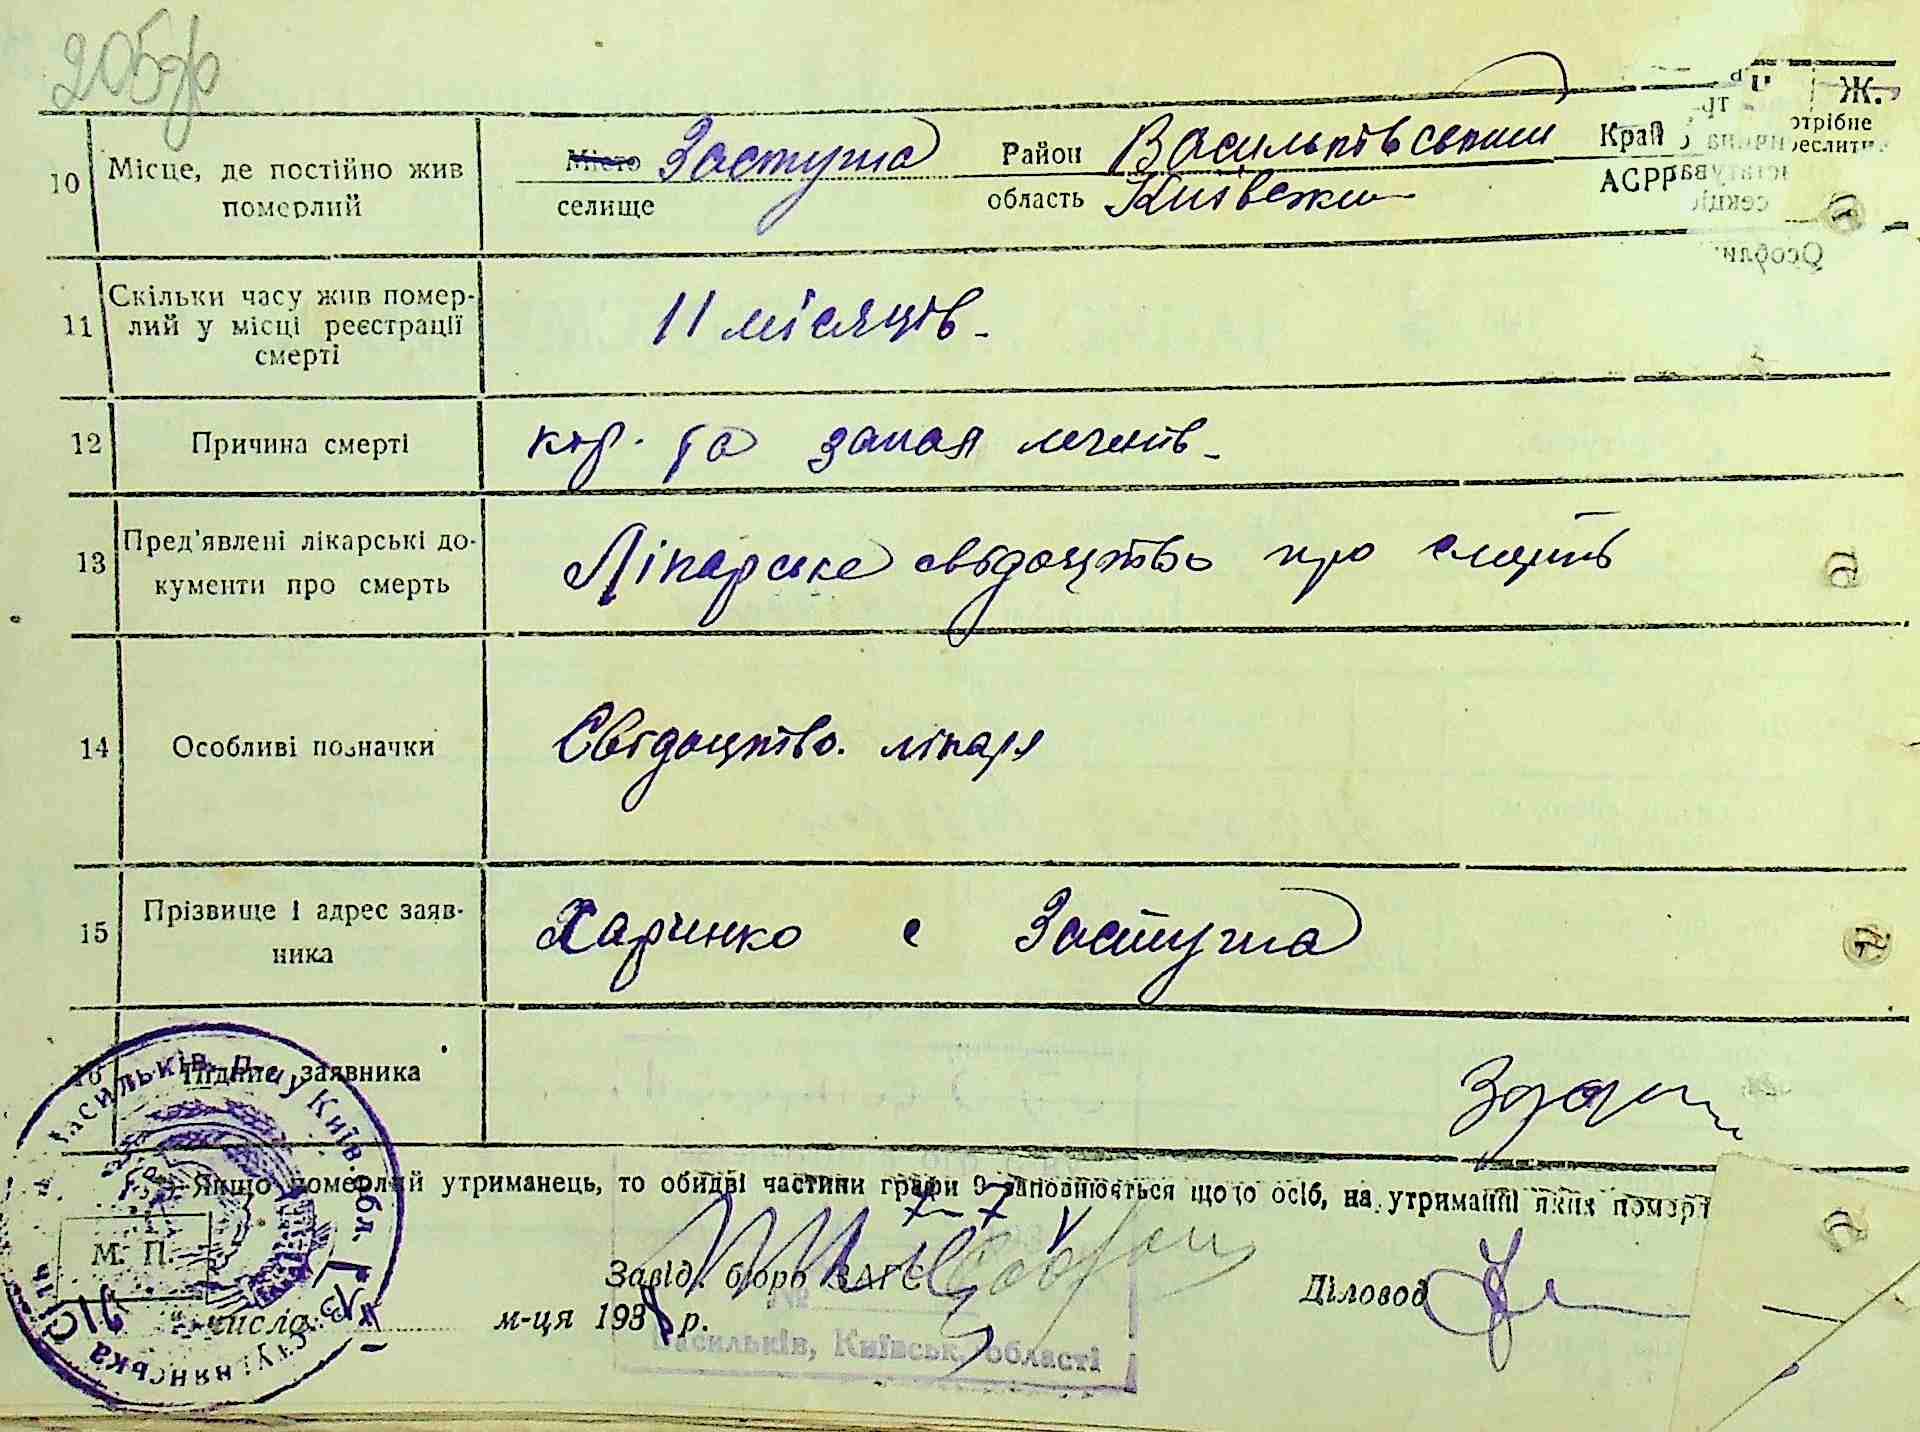 205
Ж.
отрібне
реслити
10 Місце, де постійно жив померлий
Місто Застугна Район Васильківський Край
селище область Київська АСРР
11 Скільки часу жив помер-
лий у місці реєстрації
смерті
11 місяців.
12 Причина смерті
кір. та запал легенів.
13 Пред'явлені лікарські до-
кументи про смерть
Лікарське свідоцтво про смерть
14 Особливі позначки
Свідоцтво. лікаря
15 Прізвище і адрес заяв-
ника
Харченко с Застугна
16 Підпис заявника
Якщо померлий утриманець, то обидві частини графи 9 заповнюється щодо осіб, на утриманні яких помер
Завід. бюро ЗАГС
Діловод
М. П.
число м-ця 1938 р.
Васильків. р-ну Київ. обл.
№
Васильків, Київськ. області